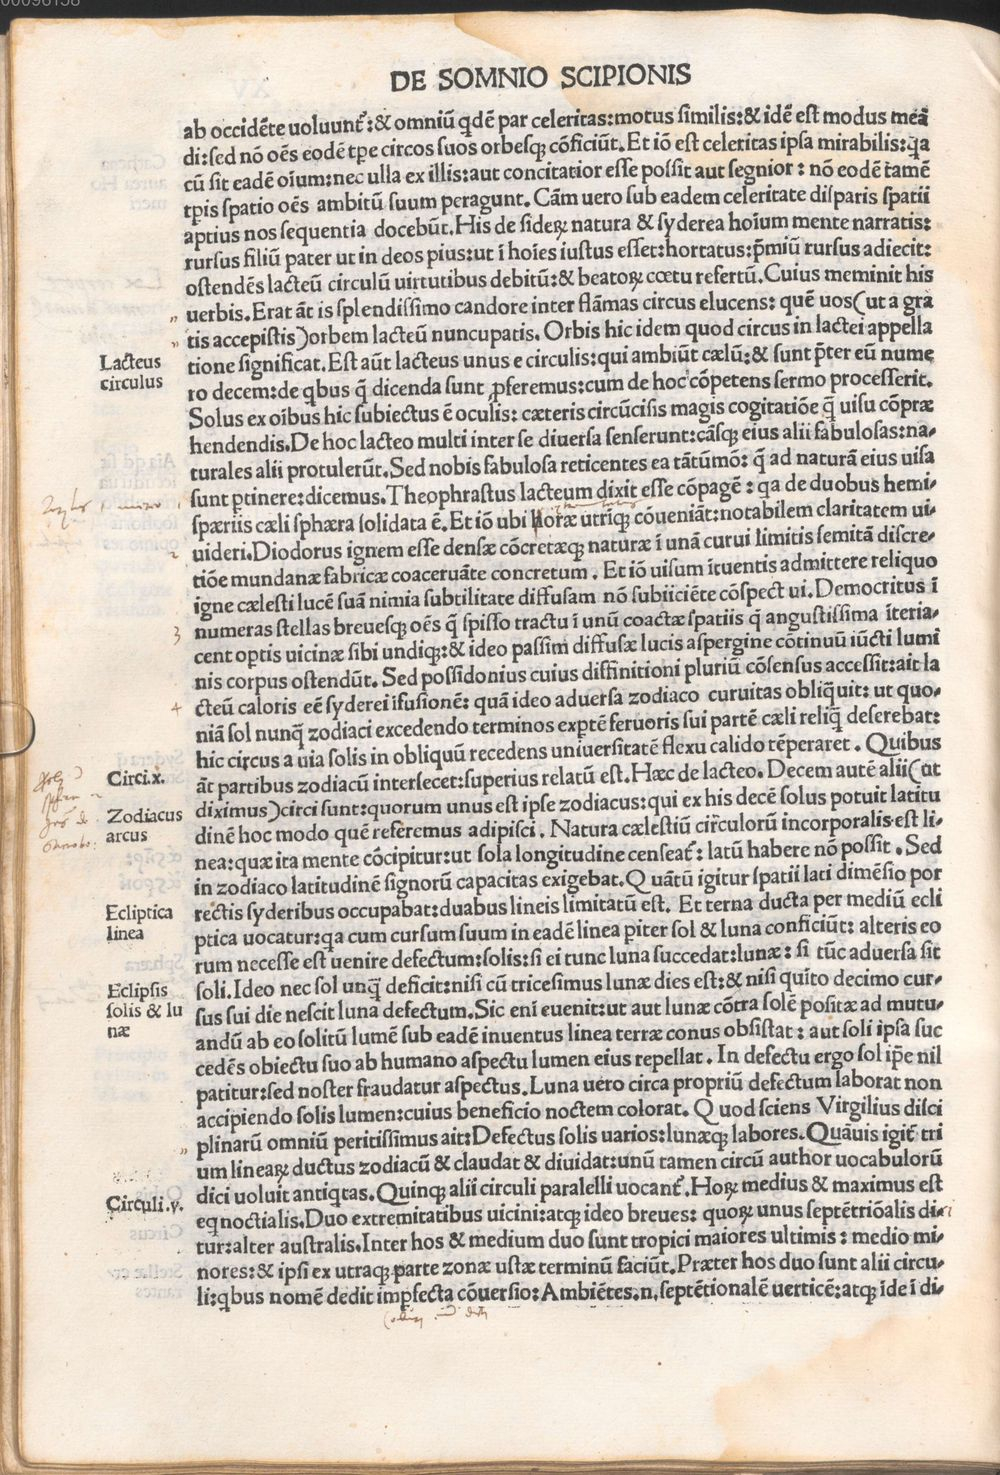 DE SOMNIO SCIPIONIS
ab occidēte uoluunt᷑:& omniū qdē par celeritas:motus ſimilis:& idē eſt modus meā
di:ſed nō oēs eodē tꝑe circos ſuos orbeſqꝫ cōficiūt. Et iō eſt celeritas ipſa mirabilis:qa
cū ſit eadē oīum:nec ulla ex illis:aut concitatior eſſe poſſit aut ſegnior : nō eodē tamē
tꝑis ſpatio oēs ambitū ſuum peragunt. Cām uero ſub eadem celeritate diſparis ſpatii
aptius nos ſequentia docebūt. His de ſideꝝ natura & ſyderea hoīum mente narratis:
rurſus filiū pater ut in deos pius:ut ī hoīes iuſtus eſſet:hortatus:p̄miū rurſus adiecit:
oſtendēs lacteū circulū uirtutibus debitū:& beatoꝝ cœtu refertū. Cuius meminit his
uerbis. Erat āt is ſplendiſſimo candore inter flāmas circus elucens: quē uos(ut a gra
tis accepiſtis)orbem lacteū nuncupatis. Orbis hic idem quod circus in lactei appella
Lacteus
circulus
tione ſignificat. Eſt aūt lacteus unus e circulis:qui ambiūt cælū:& ſunt p̄ter eū nume
ro decem:de qbus q̄ dicenda ſunt ꝓferemus:cum de hoc cōpetens ſermo proceſſerit.
Solus ex oībus hic ſubiectus ē oculis: cæteris circūciſis magis cogitatiōe q̄ uiſu cōpræ
hendendis. De hoc lacteo multi inter ſe diuerſa ſenſerunt:cāſqꝫ eius alii fabuloſas:na-
turales alii protulerūt. Sed nobis fabuloſa reticentes ea tātūmō: q̄ ad naturā eius uiſa
ſunt ꝑtinere:dicemus. Theophraſtus lacteum dixit eſſe cōpagē : qa de duobus hemi-
ſpæriis cæli ſphæra ſolidata ē. Et iō ubi horæ utriqꝫ cōueniāt:notabilem claritatem ui-
2
uideri. Diodorus ignem eſſe denſæ cōcretæqꝫ naturæ ī unā curui limitis ſemitā diſcre-
tiōe mundanæ fabricæ coaceruāte concretum . Et iō uiſum ītuentis admittere reliquo
igne cæleſti lucē ſuā nimia ſubtilitate diffuſam nō ſubiiciēte cōſpectui. Democritus ī
3
numeras ſtellas breueſqꝫ oēs q̄ ſpiſſo tractu ī unū coactæ ſpatiis q̄ anguſtiſſima īteria-
cent optis uicinæ ſibi undiqꝫ:& ideo paſſim diffuſæ lucis aſpergine cōtinuū iūcti lumi
nis corpus oſtendūt. Sed poſſidonius cuius diffinitioni pluriū cōſenſus acceſſit:ait la
4
cteū caloris eē ſyderei īfuſionē: quā ideo aduerſa zodiaco curuitas obliq̄uit: ut quo-
niā ſol nunq̄ zodiaci excedendo terminos exptē feruoris ſui partē cæli reliq̄ deſerebat:
hic circus a uia ſolis in obliquū recedens uniuerſitatē flexu calido tēperaret . Quibus
Circi.x.
āt partibus zodiacū interſecet:ſuperius relatū eſt. Hæc de lacteo. Decem autē alii(ut
Zodiacus
arcus
diximus)circi ſunt:quorum unus eſt ipſe zodiacus:qui ex his decē ſolus potuit latitu
dinē hoc modo quē referemus adipiſci . Natura cæleſtiū circulorū incorporalis eſt li-
nea:quæ ita mente cōcipitur:ut ſola longitudine cenſeat᷑: latū habere nō poſſit . Sed
in zodiaco latitudinē ſignorū capacitas exigebat. Q uātū igitur ſpatii lati dimēſio por
Ecliptica
linea
rectis ſyderibus occupabat:duabus lineis limitatū eſt. Et terna ducta per mediū ecli
ptica uocatur:qa cum curſum ſuum in eadē linea ꝑiter ſol & luna conficiūt: alteris eo
rum neceſſe eſt uenire defectum:ſolis:ſi ei tunc luna ſuccedat:lunæ: ſi tūc aduerſa ſit
Eclipſis
ſolis & lu
næ
ſoli. Ideo nec ſol unq̄ deficit:niſi cū triceſimus lunæ dies eſt:& niſi quīto decimo cur-
ſus ſui die neſcit luna defectum. Sic enī euenit:ut aut lunæ cōtra ſolē poſitæ ad mutu-
andū ab eo ſolitū lumē ſub eadē inuentus linea terræ conus obſiſtat : aut ſoli ipſa ſuc
cedēs obiectu ſuo ab humano aſpectu lumen eius repellat. In defectu ergo ſol ip̄e nil
patitur:ſed noſter fraudatur aſpectus. Luna uero circa propriū defectum laborat non
accipiendo ſolis lumen:cuius beneficio noctem colorat. Q uod ſciens Virgilius diſci
plinarū omniū peritiſſimus ait:Defectus ſolis uarios:lunæqꝫ labores. Quāuis igit᷑ tri
um lineaꝝ ductus zodiacū & claudat & diuidat:unū tamen circū author uocabulorū
Circuli.v.
dici uoluit antiqtas. Quinqꝫ alii circuli paralelli uocant᷑. Hoꝝ medius & maximus eſt
eqnoctialis. Duo extremitatibus uicini:atqꝫ ideo breues: quoꝝ unus ſeptētriōalis di-
tur:alter auſtralis. Inter hos & medium duo ſunt tropici maiores ultimis : medio mi-
nores:& ipſi ex utraqꝫ parte zonæ uſtæ terminū faciūt. Præter hos duo ſunt alii circu-
li:qbus nomē dedit imꝑfecta cōuerſio: Ambiētes.n. ſeptētionalē uerticē:atqꝫ īde ī di-